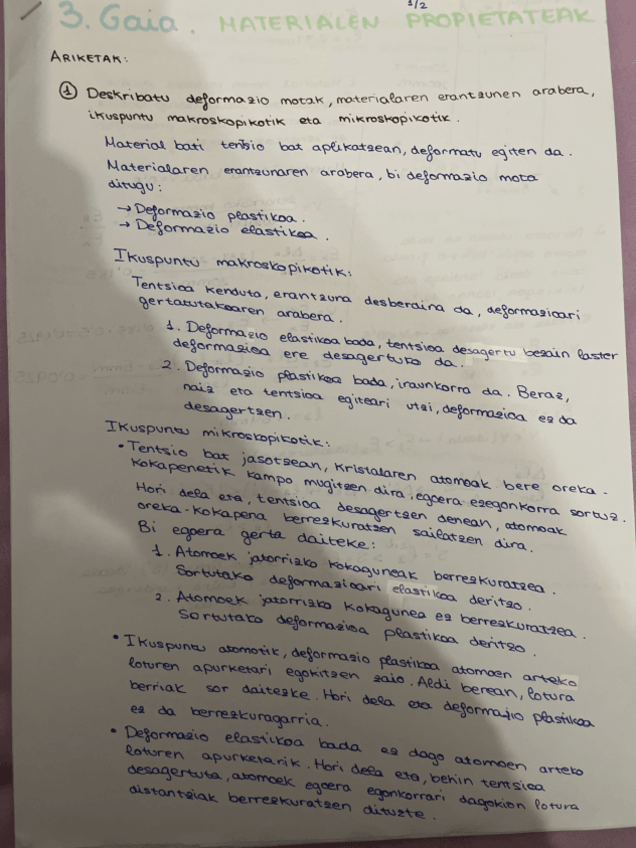 1/2
3. Gaia. MATERIALEN PROPIETATEAK
ARIKETAK:
① Deskribatu deformazio motak, materialaren erantzunen arabera,
ikuspuntu makroskopikotik eta mikroskopikotik.
Material bati tentsio bat aplikatzean, deformatu egiten da.
Materialaren erantzunaren arabera, bi deformazio mota
ditugu:
→ Deformazio plastikoa.
→ Deformazio elastikoa.
Ikuspuntu makroskopikotik:
Tentsioa kenduta, erantzuna desberdina da, deformazioari
gertatutakoaren arabera.
1. Deformazio elastikoa bada, tentsioa desagertu bezain laster
deformazioa ere desagertuko da.
2. Deformazio plastikoa bada, iraunkorra da. Beraz,
naiz eta tentsioa egiteari utzi, deformazioa ez da
desagertzen.
Ikuspuntu mikroskopikotik:
• Tentsio bat jasotzean, kristalaren atomoak bere oreka-
kokapenetik kampo mugitzen dira, egoera ezegonkorra sortuz.
Hori dela eta, tentsioa desagertzen denean, atomoak
oreka-kokapena berreskuratzen saiatzen dira.
Bi egoera gerta daiteke:
1. Atomoek jatorrizko kokaguneak berreskuratzea.
Sortutako deformazioari elastikoa deritzo.
2. Atomoek jatorrizko kokagunea ez berreskuratzea.
Sortutako deformazioa plastikoa deritzo.
• Ikuspuntu atomotik, deformazio plastikoa atomoen arteko
loturen apurketari egokitzen zaio. Aldi berean, lotura
berriak sor daitezke. Hori dela eta deformazio plastikoa
ez da berreskuragarria.
• Deformazio elastikoa bada ez dago atomoen arteko
loturen apurketarik. Hori dela eta, behin tentsioa
desagertuta, atomoek egoera egonkorrari dagokion lotura
distantziak berreskuratzen dituzte.